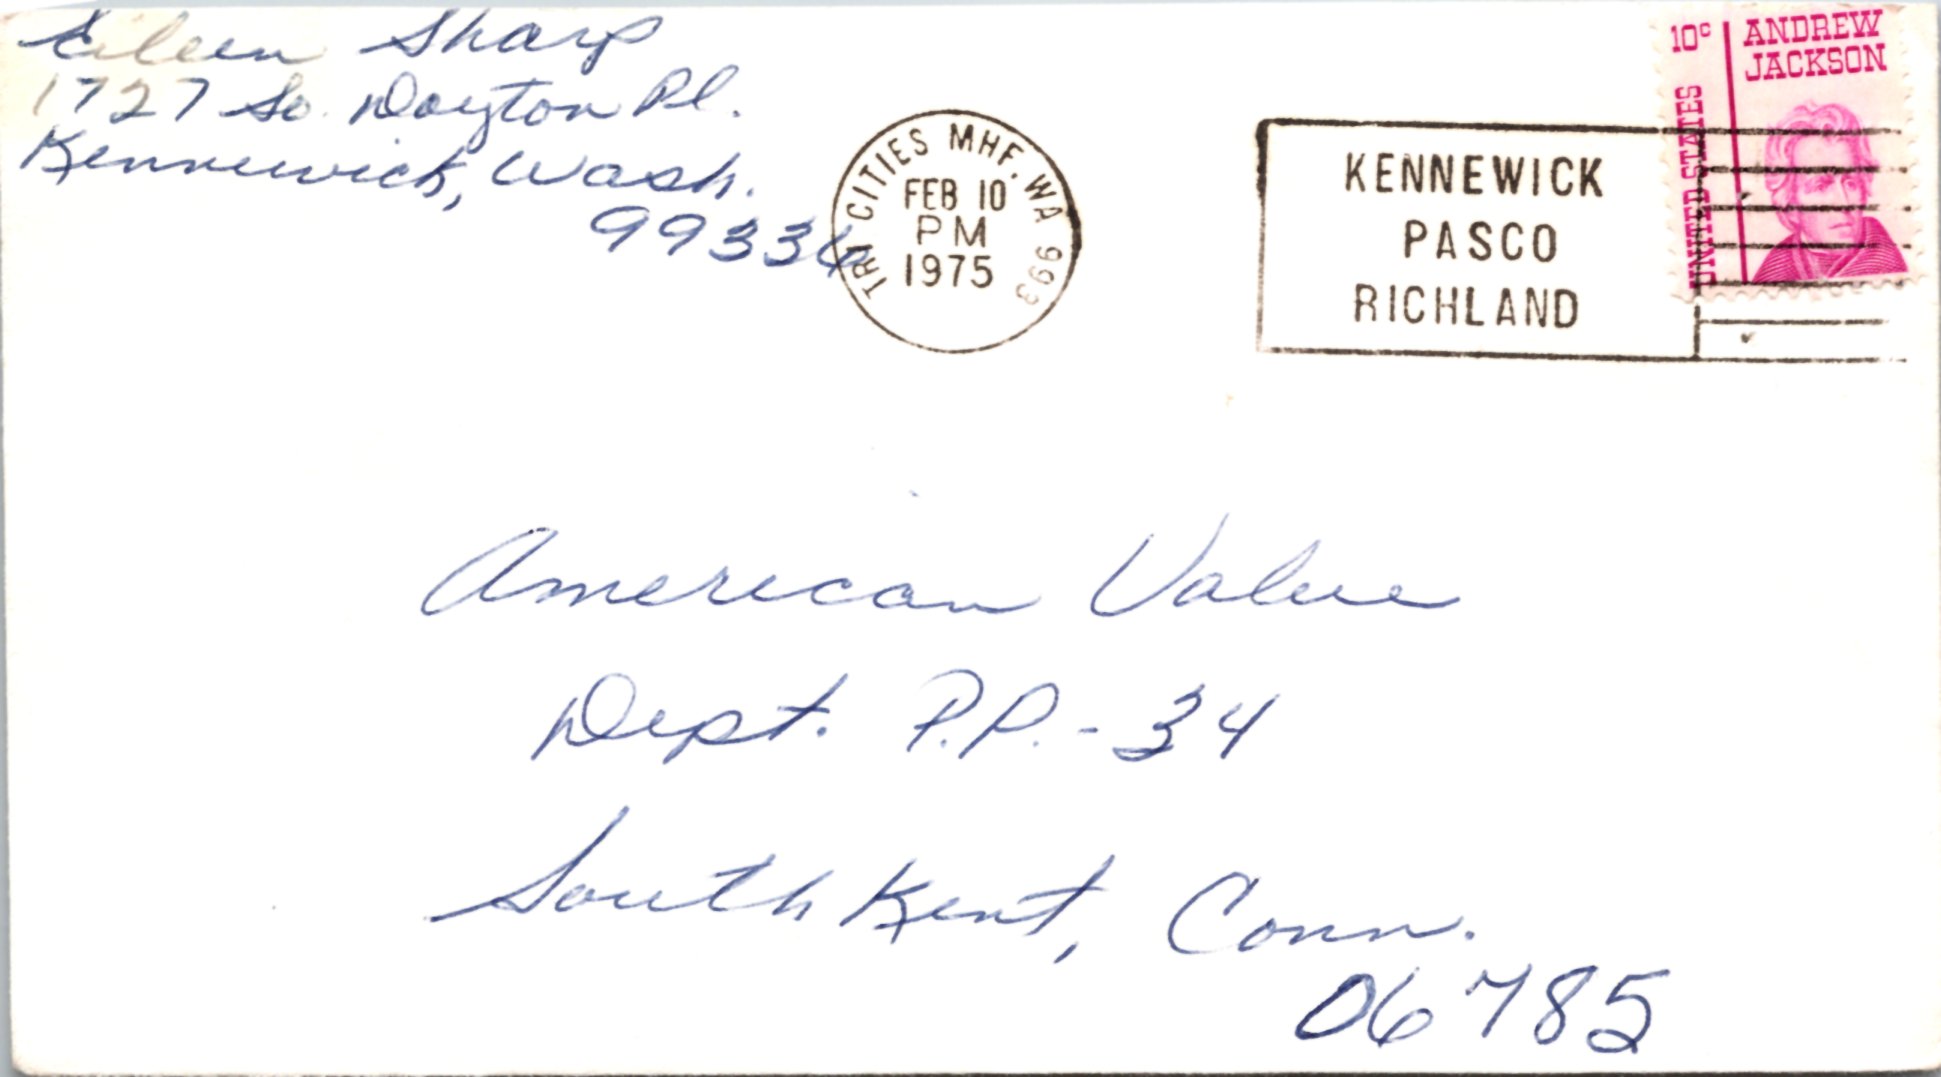 Eileen Sharp
1727 So. Dayton Pl.
Kennewick, Wash.
99336
TRI CITIES MHF. WA 993
FEB 10
PM
1975
KENNEWICK
PASCO
RICHLAND
10c
ANDREW
JACKSON
UNITED STATES
American Value
Dept. P.P.-34
South Kent, Conn.
06785